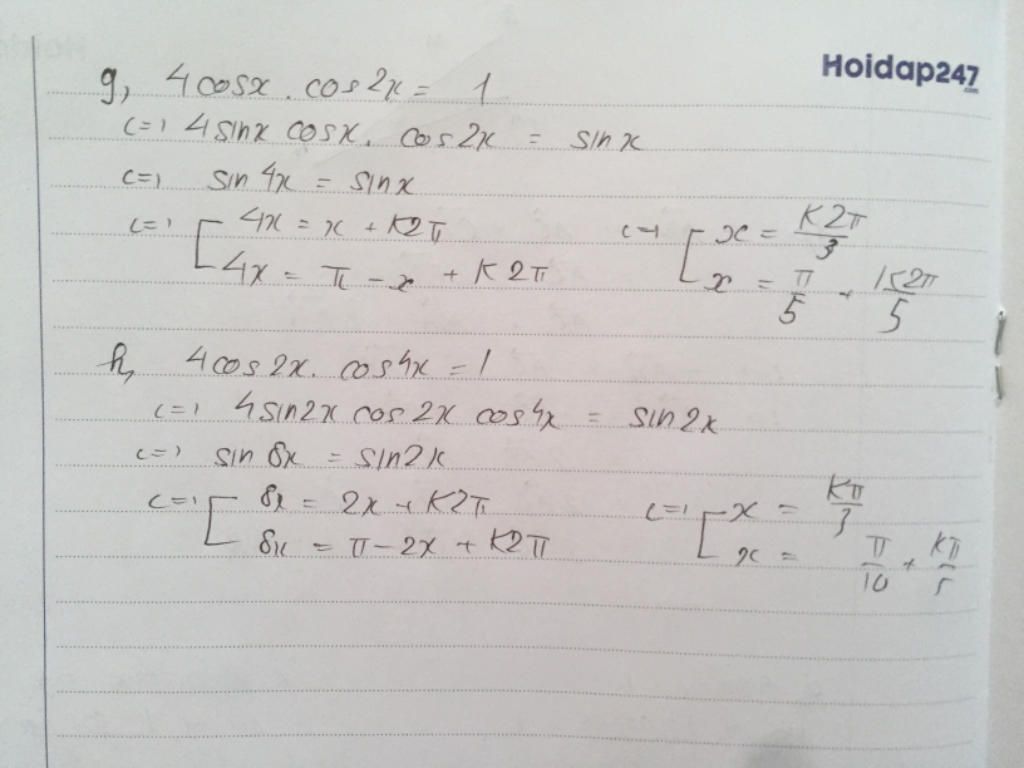 Hoidap247.com
g, 4cosx . cos2x = 1
<=> 4sinx cosx . cos2x = sinx
<=> sin 4x = sinx
<=> [ 4x = x + K2π <=> [ x = K2π/3
4x = π - x + K2π x = π/5 + K2π/5
h, 4cos2x . cos4x = 1
<=> 4sin2x cos2x cos4x = sin2x
<=> sin 8x = sin2x
<=> [ 8x = 2x + K2π <=> [ x = Kπ/3
8x = π - 2x + K2π x = π/10 + Kπ/5